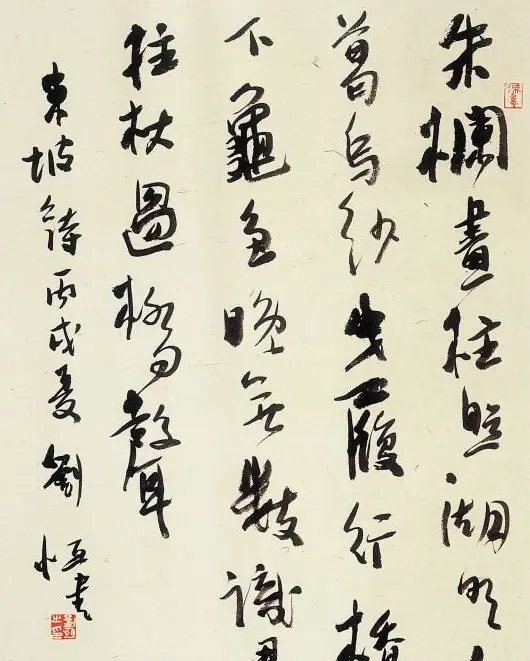 朱欄畫柱照湖明
葛烏紗曳履行橋
下龜魚晚無數識
拄杖過橋聲
東坡詩丙戌夏劉恒書